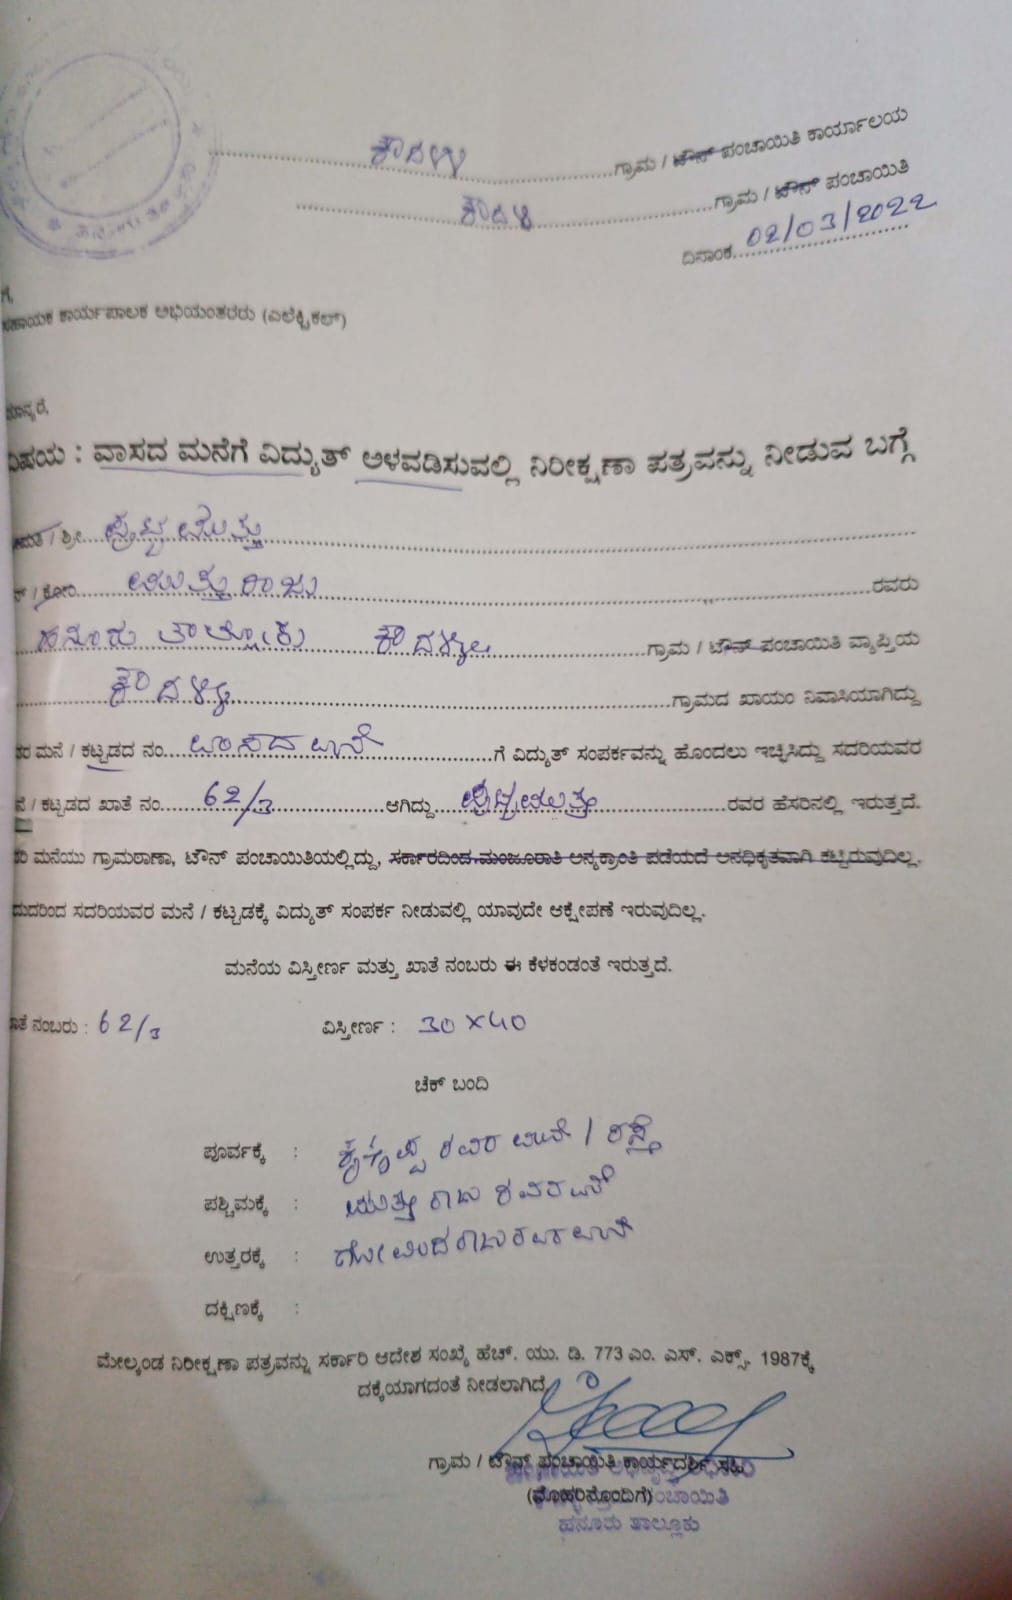 ಕೌದಳ್ಳಿ ಗ್ರಾಮ / ಟೌನ್ ಪಂಚಾಯಿತಿ ಕಾರ್ಯಾಲಯ
ಕೌದಳ್ಳಿ ಗ್ರಾಮ / ಟೌನ್ ಪಂಚಾಯಿತಿ
ದಿನಾಂಕ. 02/03/2022
ಗೆ,
ಸಹಾಯಕ ಕಾರ್ಯಪಾಲಕ ಅಭಿಯಂತರರು (ಎಲೆಕ್ಟ್ರಿಕಲ್)
ಮಾನ್ಯರೆ,
ವಿಷಯ : ವಾಸದ ಮನೆಗೆ ವಿದ್ಯುತ್ ಅಳವಡಿಸುವಲ್ಲಿ ನಿರೀಕ್ಷಣಾ ಪತ್ರವನ್ನು ನೀಡುವ ಬಗ್ಗೆ
/ ಶ್ರೀ
/ ಕೋಂ ಮುತ್ತುರಾಜು ರವರು
ಹನೂರು ತಾಲ್ಲೋಕು ಕೌದಳ್ಳಿ ಗ್ರಾಮ / ಟೌನ್ ಪಂಚಾಯಿತಿ ವ್ಯಾಪ್ತಿಯ
ಕೌದಳ್ಳಿ ಗ್ರಾಮದ ಖಾಯಂ ನಿವಾಸಿಯಾಗಿದ್ದು
ಮನೆ / ಕಟ್ಟಡದ ನಂ. ವಾಸದ ಮನೆ ಗೆ ವಿದ್ಯುತ್ ಸಂಪರ್ಕವನ್ನು ಹೊಂದಲು ಇಚ್ಛಿಸಿದ್ದು ಸದರಿಯವರ
/ ಕಟ್ಟಡದ ಖಾತೆ ನಂ. 62/3 ಆಗಿದ್ದು ರವರ ಹೆಸರಿನಲ್ಲಿ ಇರುತ್ತದೆ.
ಮನೆಯು ಗ್ರಾಮಠಾಣಾ, ಟೌನ್ ಪಂಚಾಯಿತಿಯಲ್ಲಿದ್ದು, ಸರ್ಕಾರದಿಂದ ಮಂಜೂರಾತಿ ಅನ್ಯಕ್ರಾಂತಿ ಪಡೆಯದೆ ಅನಧಿಕೃತವಾಗಿ ಕಟ್ಟಿರುವುದಿಲ್ಲ.
ಸದರಿಯವರ ಮನೆ / ಕಟ್ಟಡಕ್ಕೆ ವಿದ್ಯುತ್ ಸಂಪರ್ಕ ನೀಡುವಲ್ಲಿ ಯಾವುದೇ ಆಕ್ಷೇಪಣೆ ಇರುವುದಿಲ್ಲ.
ಮನೆಯ ವಿಸ್ತೀರ್ಣ ಮತ್ತು ಖಾತೆ ನಂಬರು ಈ ಕೆಳಕಂಡಂತೆ ಇರುತ್ತದೆ.
ಖಾತೆ ನಂಬರು : 62/3 ವಿಸ್ತೀರ್ಣ : 30×40
ಚೆಕ್ ಬಂದಿ
ಪೂರ್ವಕ್ಕೆ : ರವರ ಮನೆ / ರಸ್ತೆ
ಪಶ್ಚಿಮಕ್ಕೆ : ಮುತ್ತುರಾಜು ರವರ ಮನೆ
ಉತ್ತರಕ್ಕೆ : ಗೋವಿಂದರಾಜು ರವರ ಮನೆ
ದಕ್ಷಿಣಕ್ಕೆ :
ಮೇಲ್ಕಂಡ ನಿರೀಕ್ಷಣಾ ಪತ್ರವನ್ನು ಸರ್ಕಾರಿ ಆದೇಶ ಸಂಖ್ಯೆ ಹೆಚ್. ಯು. ಡಿ. 773 ಎಂ. ಎಸ್. ಎಕ್ಸ್. 1987ಕ್ಕೆ
ದಕ್ಕೆಯಾಗದಂತೆ ನೀಡಲಾಗಿದೆ
ಗ್ರಾಮ / ಟೌನ್ ಪಂಚಾಯಿತಿ ಕಾರ್ಯದರ್ಶಿ ಸಹಿ
(ಮೊಹರಿನೊಂದಿಗೆ) ಪಂಚಾಯಿತಿ
ಹನೂರು ತಾಲ್ಲೂಕು